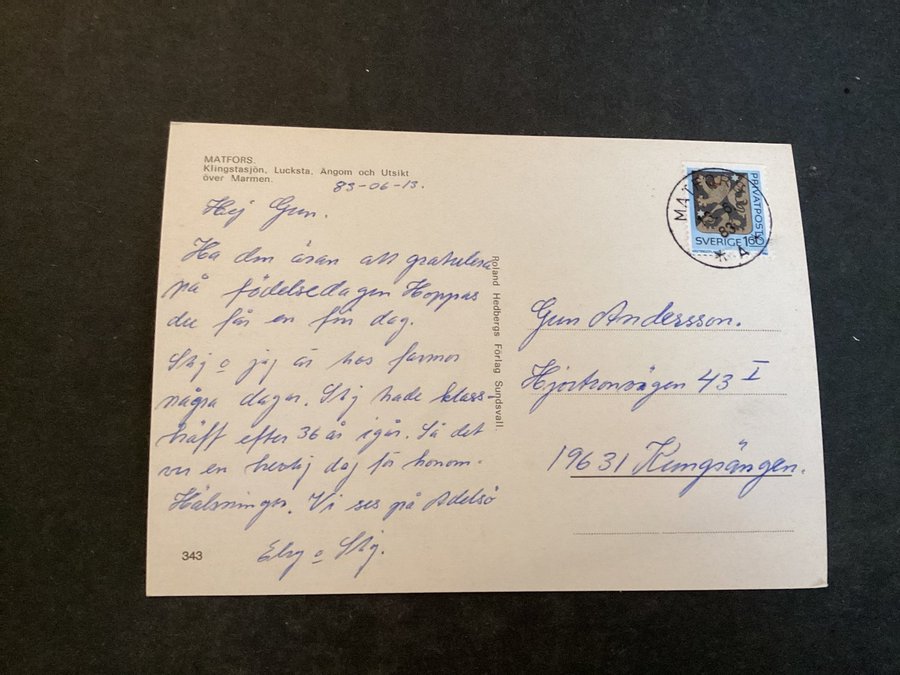 MATFORS.
Klingstasjön, Lucksta, Ängom och Utsikt
över Marmen.
83-06-13.
Hej Gun.
Ha den äran att gratulera
på födelsedagen Hoppas
du får en fin dag.
Stig o jag är hos farmor
några dagar. Stig hade klass-
träff efter 36 år igår. Så det
var en festlig dag för honom.
Hälsningar. Vi ses på Adelsö
Elsy o Stig.
343
Roland Hedbergs Förlag Sundsvall.
PRIVATPOST
SVERIGE 160
MATFORS
83
* A *
Gun Andersson.
Hjortronvägen 43 I
19631 Kungsängen.